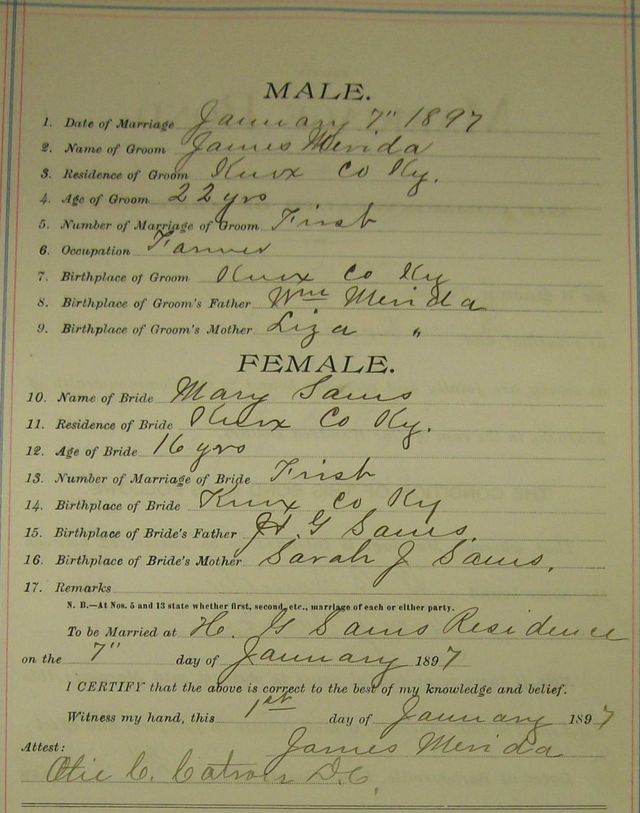 MALE.
1. Date of Marriage January 7" 1897
2. Name of Groom James Merida
3. Residence of Groom Knox Co Ky.
4. Age of Groom 22 yrs
5. Number of Marriage of Groom First
6. Occupation Farmer
7. Birthplace of Groom Knox Co Ky
8. Birthplace of Groom's Father Wm Merida
9. Birthplace of Groom's Mother Liza "
FEMALE.
10. Name of Bride Mary Sams
11. Residence of Bride Knox Co Ky.
12. Age of Bride 16 yrs
13. Number of Marriage of Bride First
14. Birthplace of Bride Knox Co Ky
15. Birthplace of Bride's Father H. G Sams.
16. Birthplace of Bride's Mother Sarah J Sams.
17. Remarks
N. B.—At Nos. 5 and 13 state whether first, second, etc., marriage of each or either party.
To be Married at H. G Sams Residence
on the 7" day of January 1897
I CERTIFY that the above is correct to the best of my knowledge and belief.
Witness my hand, this 1st day of January 1897
James Merida
Attest:
C. D.C.